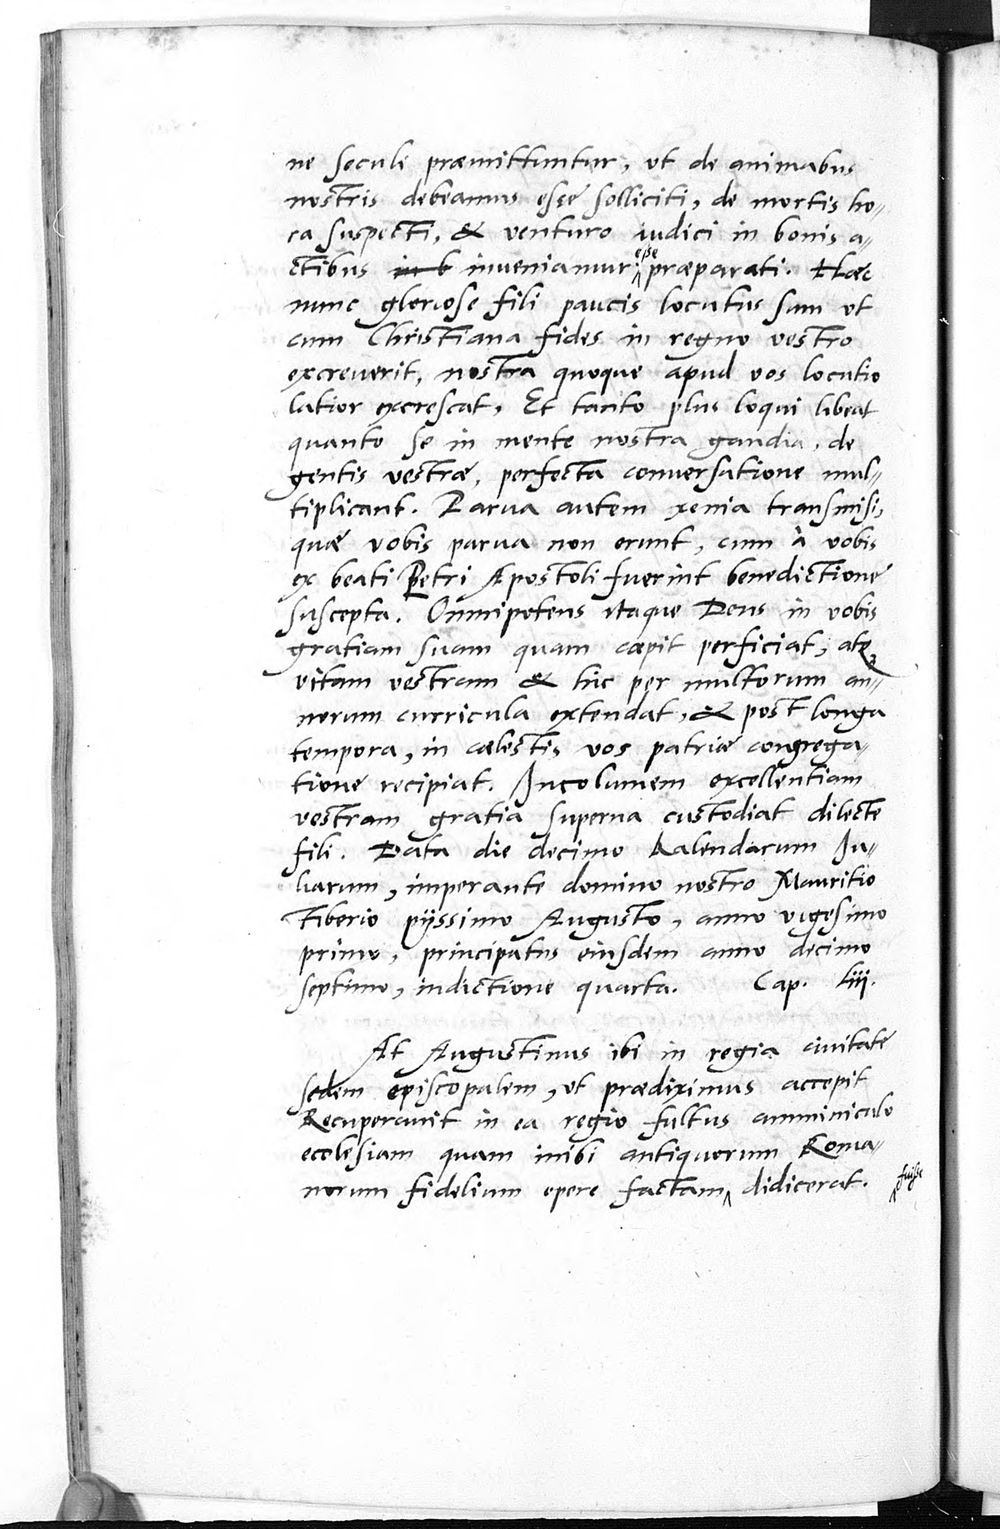 ne seculi præmittuntur, vt de animabus
nostris debeamus esse solliciti, de mortis ho-
ra suspecti, & venturo iudici in bonis a-
ctibus inueniamur esse præparati. Hæc
nunc gloriose fili paucis locutus sum vt
cum Christiana fides in regno vestro
excreuerit, nostra quoque apud vos locutio
latior excrescat, Et tanto plus loqui libeat
quanto se in mente nostra gaudia, de
gentis vestræ, perfecta conuersatione mul-
tiplicant. Parua autem xenia transmisi,
quæ vobis parua non erunt, cum à vobis
ex beati Petri Apostoli fuerint benedictione
suscepta. Omnipotens itaque Deus in vobis
gratiam suam quam cæpit perficiat, atq3
vitam vestram & hic per multorum an-
norum curricula extendat, & post longa
tempora, in cælestis vos patriæ congrega-
tione recipiat. Incolumem excellentiam
vestram gratia superna custodiat dilecte
fili. Data die decimo kalendarum Iu-
liarum, imperante domino nostro Mauritio
Tiberio pijssimo Augusto, anno vigesimo
primo, principatus eiusdem anno decimo
septimo, indictione quarta. Cap. liij.
At Augustinus ibi in regia ciuitate
sedem episcopalem, vt prædiximus accepit
Recuperauit in ea regio fultus amminiculo
ecclesiam quam inibi antiquorum Roma-
norum fidelium opere factam fuisse didicerat.